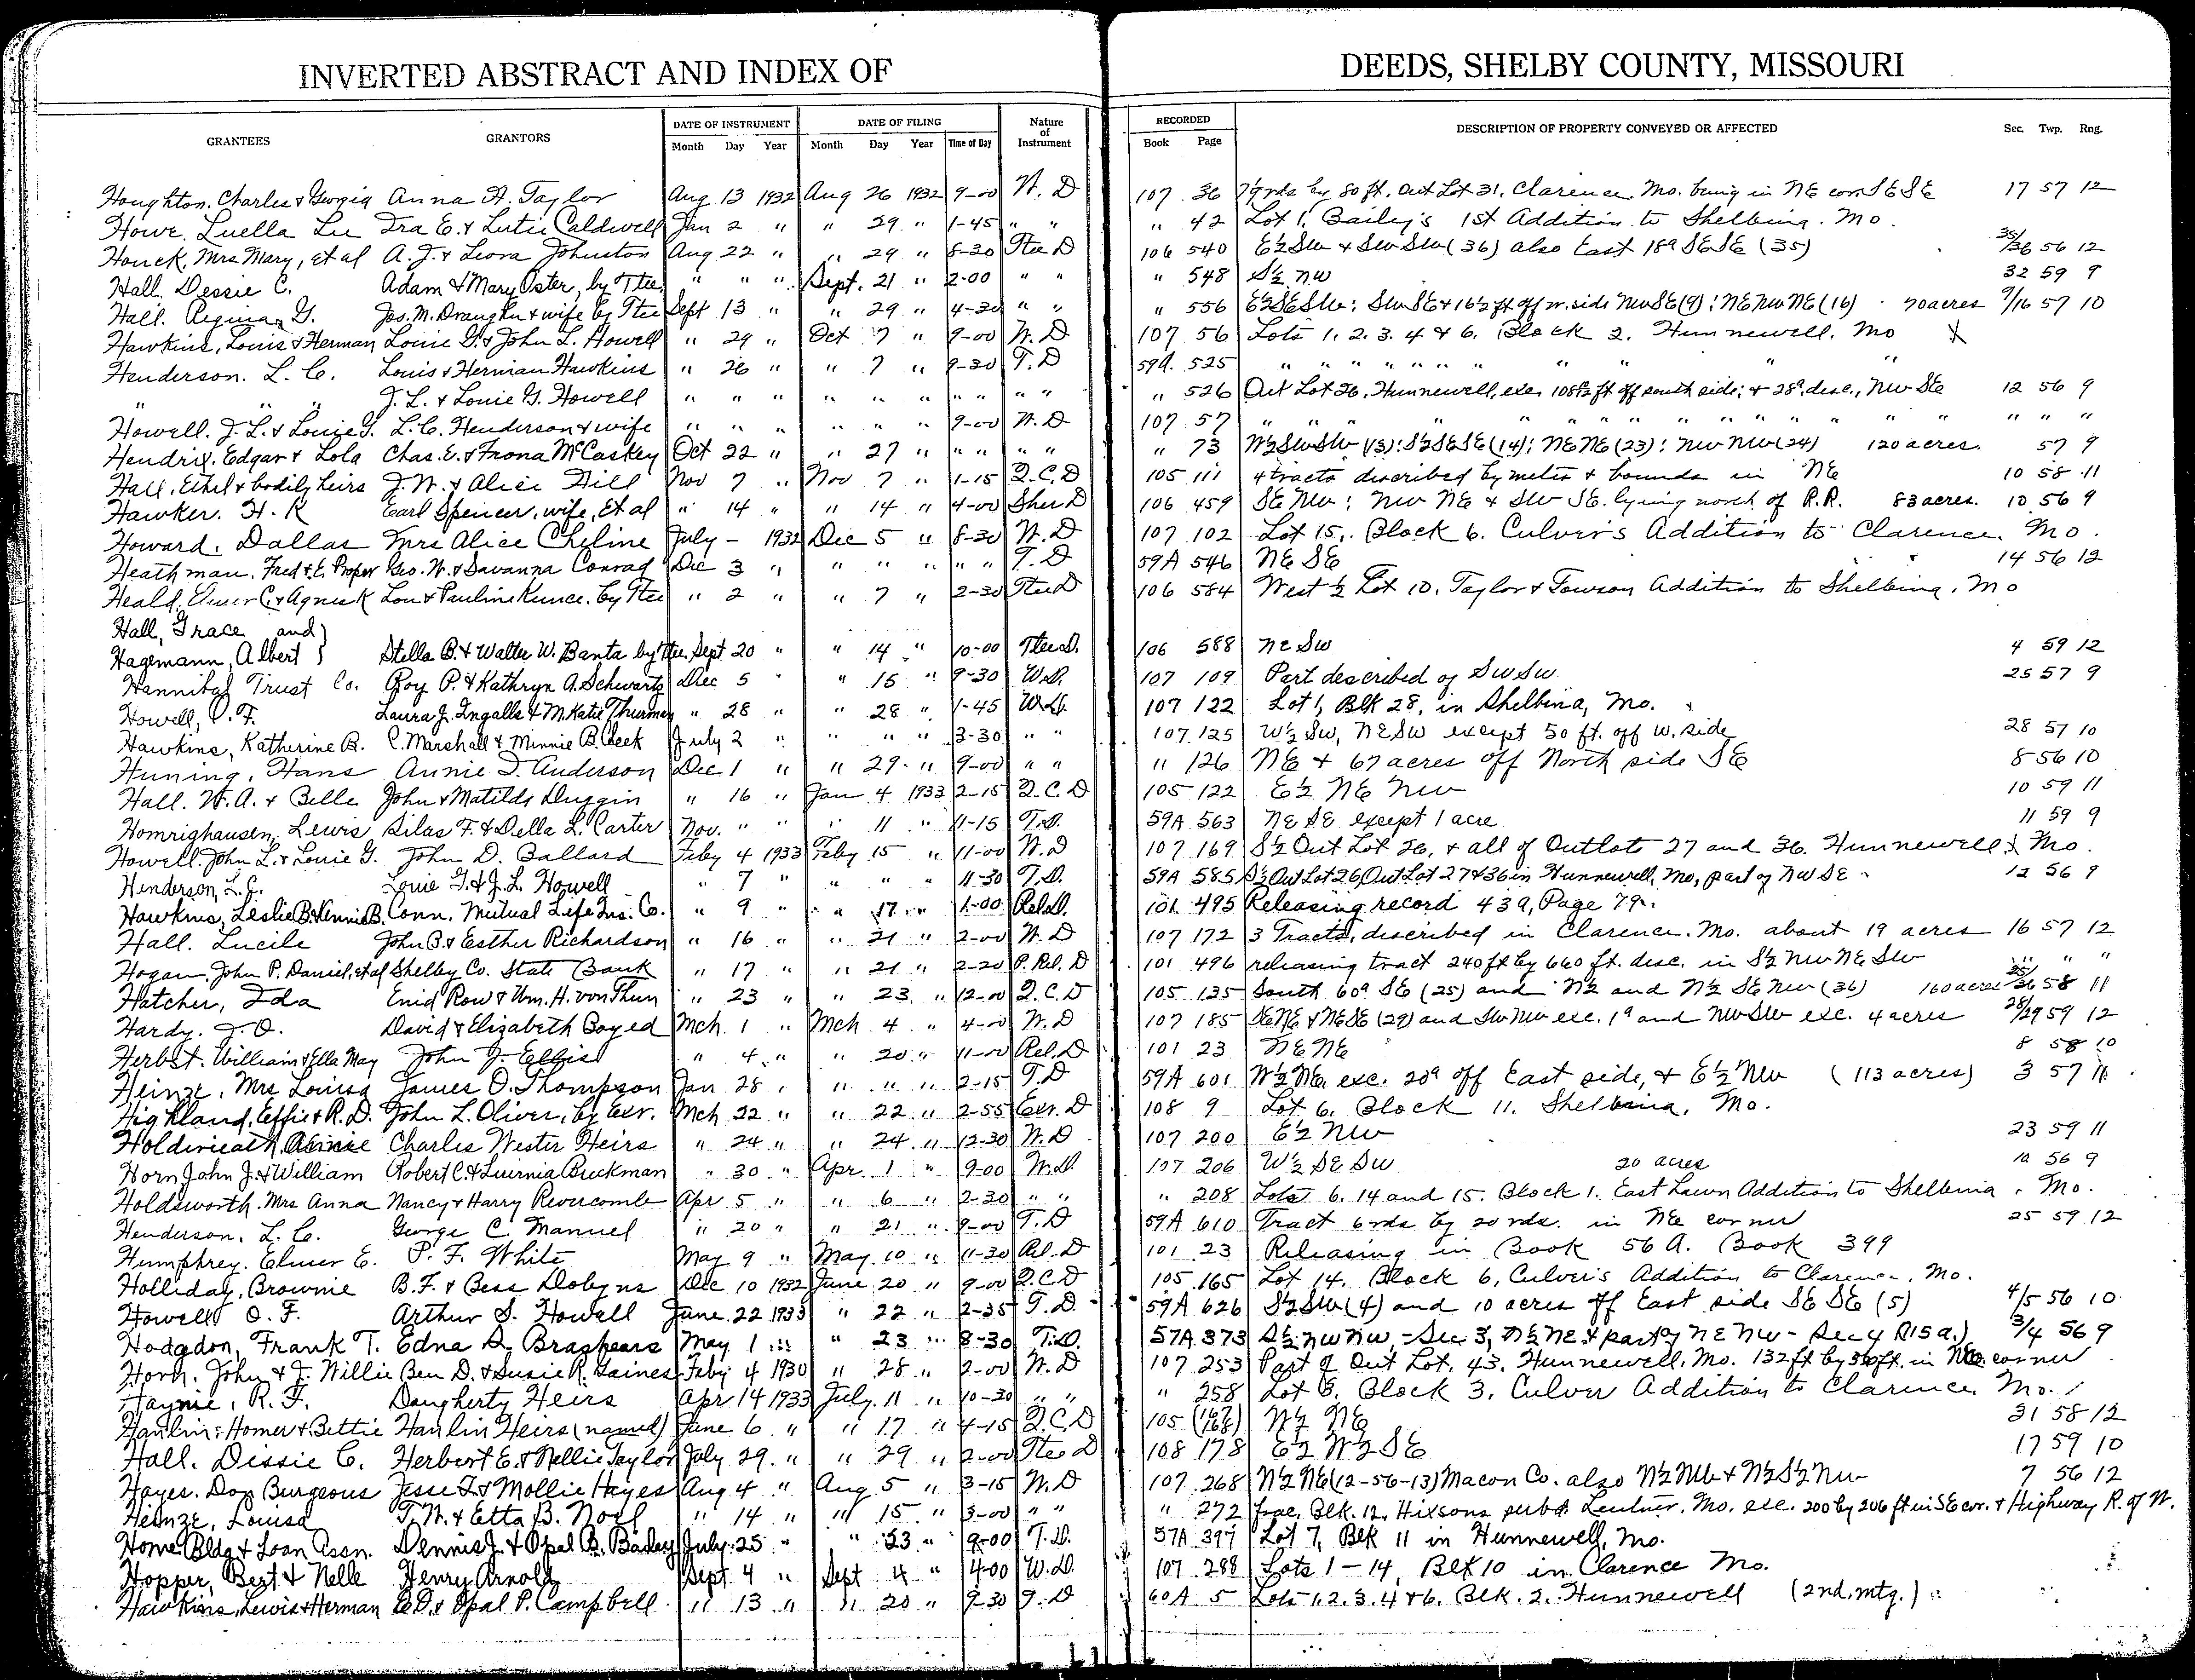 INVERTED ABSTRACT AND INDEX OF DEEDS, SHELBY COUNTY, MISSOURI
GRANTEES GRANTORS DATE OF INSTRUMENT DATE OF FILING Nature of Instrument RECORDED DESCRIPTION OF PROPERTY CONVEYED OR AFFECTED Sec. Twp. Rng.
Month Day Year Month Day Year Time of Day Book Page
Houghton. Charles & Georgia Anna H. Taylor Aug 13 1932 Aug 26 1932 9-00 W. D 107 36 rds by 80 ft. Out Lot 31, Clarence, Mo. being in NE cor. SE SE 17 57 12
Howe. Luella Lee Ira E. & Lutie Caldwell Jan 2 " " 29 " 1-45 " " " 42 Lot 1, Bailey's 1st Addition to Shelbina. Mo.
Houck, Mrs Mary, et al A. J. & Leora Johnston Aug 22 " " 29 " 8-30 Tlee D 106 540 E½ SW & SW SW (36) also East 18a SE SE (35) 35/36 56 12
Hall. Dessie C. Adam & Mary Oster, by Tlee " " " Sept. 21 " 2-00 " " " 548 S½ NW 32 59 9
Hall. G. Jas. M. Draughn & wife by Tlee Sept 13 " " 29 " 4-30 " " " 556 E½ SE SW; SW SE & 16½ ft off w. side NW SE (9); NE NW NE (16) 70 acres 9/16 57 10
Hawkins, Louis & Herman Louie G. & John L. Howell " 29 " Oct 7 " 9-00 W. D 107 56 Lots 1. 2. 3. 4 & 6. Block 2. Hunnewell. Mo X
Henderson. L. C. Louis & Herman Hawkins " 26 " " 7 " 9-30 T. D 59A. 525 " " " " " " " " " "
" " " J. L. & Louie G. Howell " " " " " " " " " " " 526 Out Lot 26, Hunnewell, exc. 108½ ft off south side; & 28a desc., NW SE 12 56 9
Howell. J. L. & Louie G. L. C. Henderson & wife " " " " " " 9-00 W. D 107 57 " " " " " " " " " " " "
Hendrix. Edgar & Lola Chas. E. & Frona McCaskey Oct 22 " " 27 " " " " " " 73 W½ SW SW (13); S½ SE SE (14); NE NE (23); NW NW (24) 120 acres. 57 9
Hall, Ethel & bodily heirs J. W. & Alice Hill Nov 7 " Nov 7 " 1-15 Q. C. D 105 111 4 tracts described by metes & bounds in NE 10 58 11
Hawker. H. K Earl Spencer, wife, et al " 14 " " 14 " 4-00 Sher D 106 459 SE NW; NW NE & SW SE. lying north of R.R. 83 acres. 10 56 9
Howard, Dallas Mrs Alice Cheline July - 1932 Dec 5 " 8-30 W. D 107 102 Lot 15, Block 6. Culver's Addition to Clarence. Mo.
Heathman. Fred & E. Proper Geo. W. & Savanna Conrad Dec 3 " " " " " " T. D 59A 546 NE SE 14 56 12
Heald. Elmer C. & Agnes K Lou & Pauline Kunce. by Tlee " 2 " " 7 " 2-30 Tlee D 106 584 West ½ Lot 10. Taylor & Towson Addition to Shelbina. Mo
Hall, Grace and }
Hagemann, Albert } Stella B. & Walter W. Banta by Tlee. Sept. 20 " " 14 " 10-00 Tlee D. 106 588 NE SW 4 59 12
Hannibal Trust Co. Roy P. & Kathryn A. Schwartz Dec 5 " " 15 " 9-30 W.D. 107 109 Part described of SW SW 25 57 9
Howell, O. F. Laura J. Ingalls & M. Katie Thurman " 28 " " 28 " 1-45 W.D. 107 122 Lot 1, Blk 28, in Shelbina, Mo.
Hawkins, Katherine B. C. Marshall & Minnie B. Cheek July 2 " " " " 3-30 " " 107 125 W½ SW, NE SW except 50 ft. off W. side 28 57 10
Huning, Hans Annie T. Anderson Dec 1 " " 29 " 9-00 " " " 126 NE & 67 acres off North side SE 8 56 10
Hall. W. A. & Belle John & Matilda Duggin " 16 " Jan 4 1933 2-15 Q. C. D 105 122 E½ NE NW 10 59 11
Homrighausen, Lewis Silas F. & Della L. Carter Nov. " " " 11 " 11-15 T. D. 59A 563 NE SE except 1 acre 11 59 9
Howell. John L. & Louie G. John D. Ballard Feby 4 1933 Feby 15 " 11-00 W. D 107 169 S½ Out Lot 26, & all of Outlots 27 and 36. Hunnewell, Mo.
Henderson, L. C. Louie G. & J. L. Howell " 7 " " " " 11-30 T. D. 59A 585 S½ Out Lot 26, Out Lot 27 & 36 in Hunnewell, Mo, part of NW SE 12 56 9
Hawkins, Leslie B. & Vennie B. Conn. Mutual Life Ins. Co. " 9 " " 17 " 1-00 Rel.D. 101 495 Releasing record 43a, Page 79.
Hall. Lucile John B. & Esther Richardson " 16 " " 21 " 2-00 W. D 107 172 3 Tracts, described in Clarence. Mo. about 19 acres 16 57 12
Hogan. John P. Daniel, et al Shelby Co. State Bank " 17 " " 21 " 2-20 P. Rel. D 101 496 releasing tract 240 ft by 660 ft. desc. in S½ NW NE SW " " "
Hatcher, Ida Enid Row & Wm. H. von Thun " 23 " " 23 " 12-00 Q. C. D 105 135 South 60a SE (25) and N½ and N½ SE NW (36) 160 acres 25/36 58 11
Hardy. J. O. David & Elizabeth Boyed Mch. 1 " Mch. 4 " 4-00 W. D 107 185 SE NE & NE SE (29) and SW NW exc. 1a and NW SW exc. 4 acres 28/29 59 12
Herbst. William & Ella May John J. Ellis " 4 " " 20 " 11-00 Rel. D 101 23 NE NE 8 58 10
Heinze, Mrs Louisa James O. Thompson Jan 28 " " " " 2-15 T. D 59A 601 W½ NE. exc. 20a off East side, & E½ NW (113 acres) 3 57 11
Highland, Effie & R. D. John L. Oliver, by Exr. Mch. 22 " " 22 " 2-55 Exr. D 108 9 Lot 6. Block 11. Shelbina, Mo.
Charles Wester Heirs " 24 " " 24 " 12-30 W. D 107 200 E½ NW 23 59 11
Horn John J. & William Robert C. & Buckman " 30 " Apr. 1 " 9-00 W. D. 107 206 W½ SE SW 20 acres 56 9
Holdsworth. Mrs Anna Nancy & Harry Rivercomb Apr 5 " " 6 " 2-30 " " " 208 Lots 6. 14 and 15. Block 1. East Lawn Addition to Shelbina. Mo.
Henderson. L. C. George C Manuel " 20 " " 21 " 9-00 T. D 59A 610 Tract 6 rds by 20 rds. in NE corner 25 59 12
Humphrey. Elmer E. P. F. White May 9 " May 10 " 11-30 Rel. D 101 23 Releasing in Book 56 A. Book 399
Holliday, Brownie B. F. & Bess Dobyns Dec 10 1932 June 20 " 9-00 Q. C. D 105 165 Lot 14. Block 6, Culver's Addition to Clarence. Mo.
Howell O. F. Arthur S. Howell June 22 1933 " 22 " 2-35 T. D. 59A 626 S½ SW (4) and 10 acres off East side SE SE (5) 4/5 56 10
Hodgdon, Frank T. Edna D. Brashears May 1 " " 23 " 8-30 T.D. 57A 373 S½ NW NW, - Sec 3, N½ NE & part of NE NW - Sec 4 (115 a.) 3/4 56 9
Horn. John & J. Willie Ben D. & Susie R. Gaines Feby 4 1930 " 28 " 2-00 W. D 107 253 Part of Out Lot. 43. Hunnewell. Mo. 132 ft by ft. in corner
Haynie, R. F. Daugherty Heirs Apr. 14 1933 July. 11 " 10-30 " " " 258 Lot Block 3. Culver Addition to Clarence. Mo.
Hanlin. Homer & Bettie Hanlin Heirs (named) June 6 " " 17 " 4-15 Q. C. D 105 (167/168) N½ NE 31 58 12
Hall. Dissie C. Herbert E. & Nellie Taylor July 29. " " 29 " 2-00 Tlee D 108 178 E½ W½ SE 17 59 10
Hayes. Don Burgeous Jesse & Mollie Hayes Aug 4 " Aug 5 " 3-15 W. D 107 268 N½ NE (12-56-13) Macon Co. also N½ NW & N½ S½ NW 7 56 12
Heinze, Louisa T. W. & Etta B. Noel " 14 " " 15 " 3-00 " " " 272 frac. Blk. 12. Hixsons subd Lentner. Mo. exc. 200 by 206 ft in SE cor. & Highway R. of W.
Home Bldg & Loan Assn. Dennis J. & Opal B. Bailey July 25 " " 23 " 9-00 T. D. 57A 397 Lot 7, Blk 11 in Hunnewell, Mo.
Hopper, Bert & Nelle Henry Arnold Sept. 4 " Sept 4 " 4-00 W. D. 107 288 Lots 1-14, Blk 10 in Clarence Mo.
Hawkins, Lewis & Herman & Opal P. Campbell " 13 " " 20 " 9-30 T. D 60A 5 Lots 1. 2. 3. 4 & 6. Blk. 2. Hunnewell (2nd. mtg.)